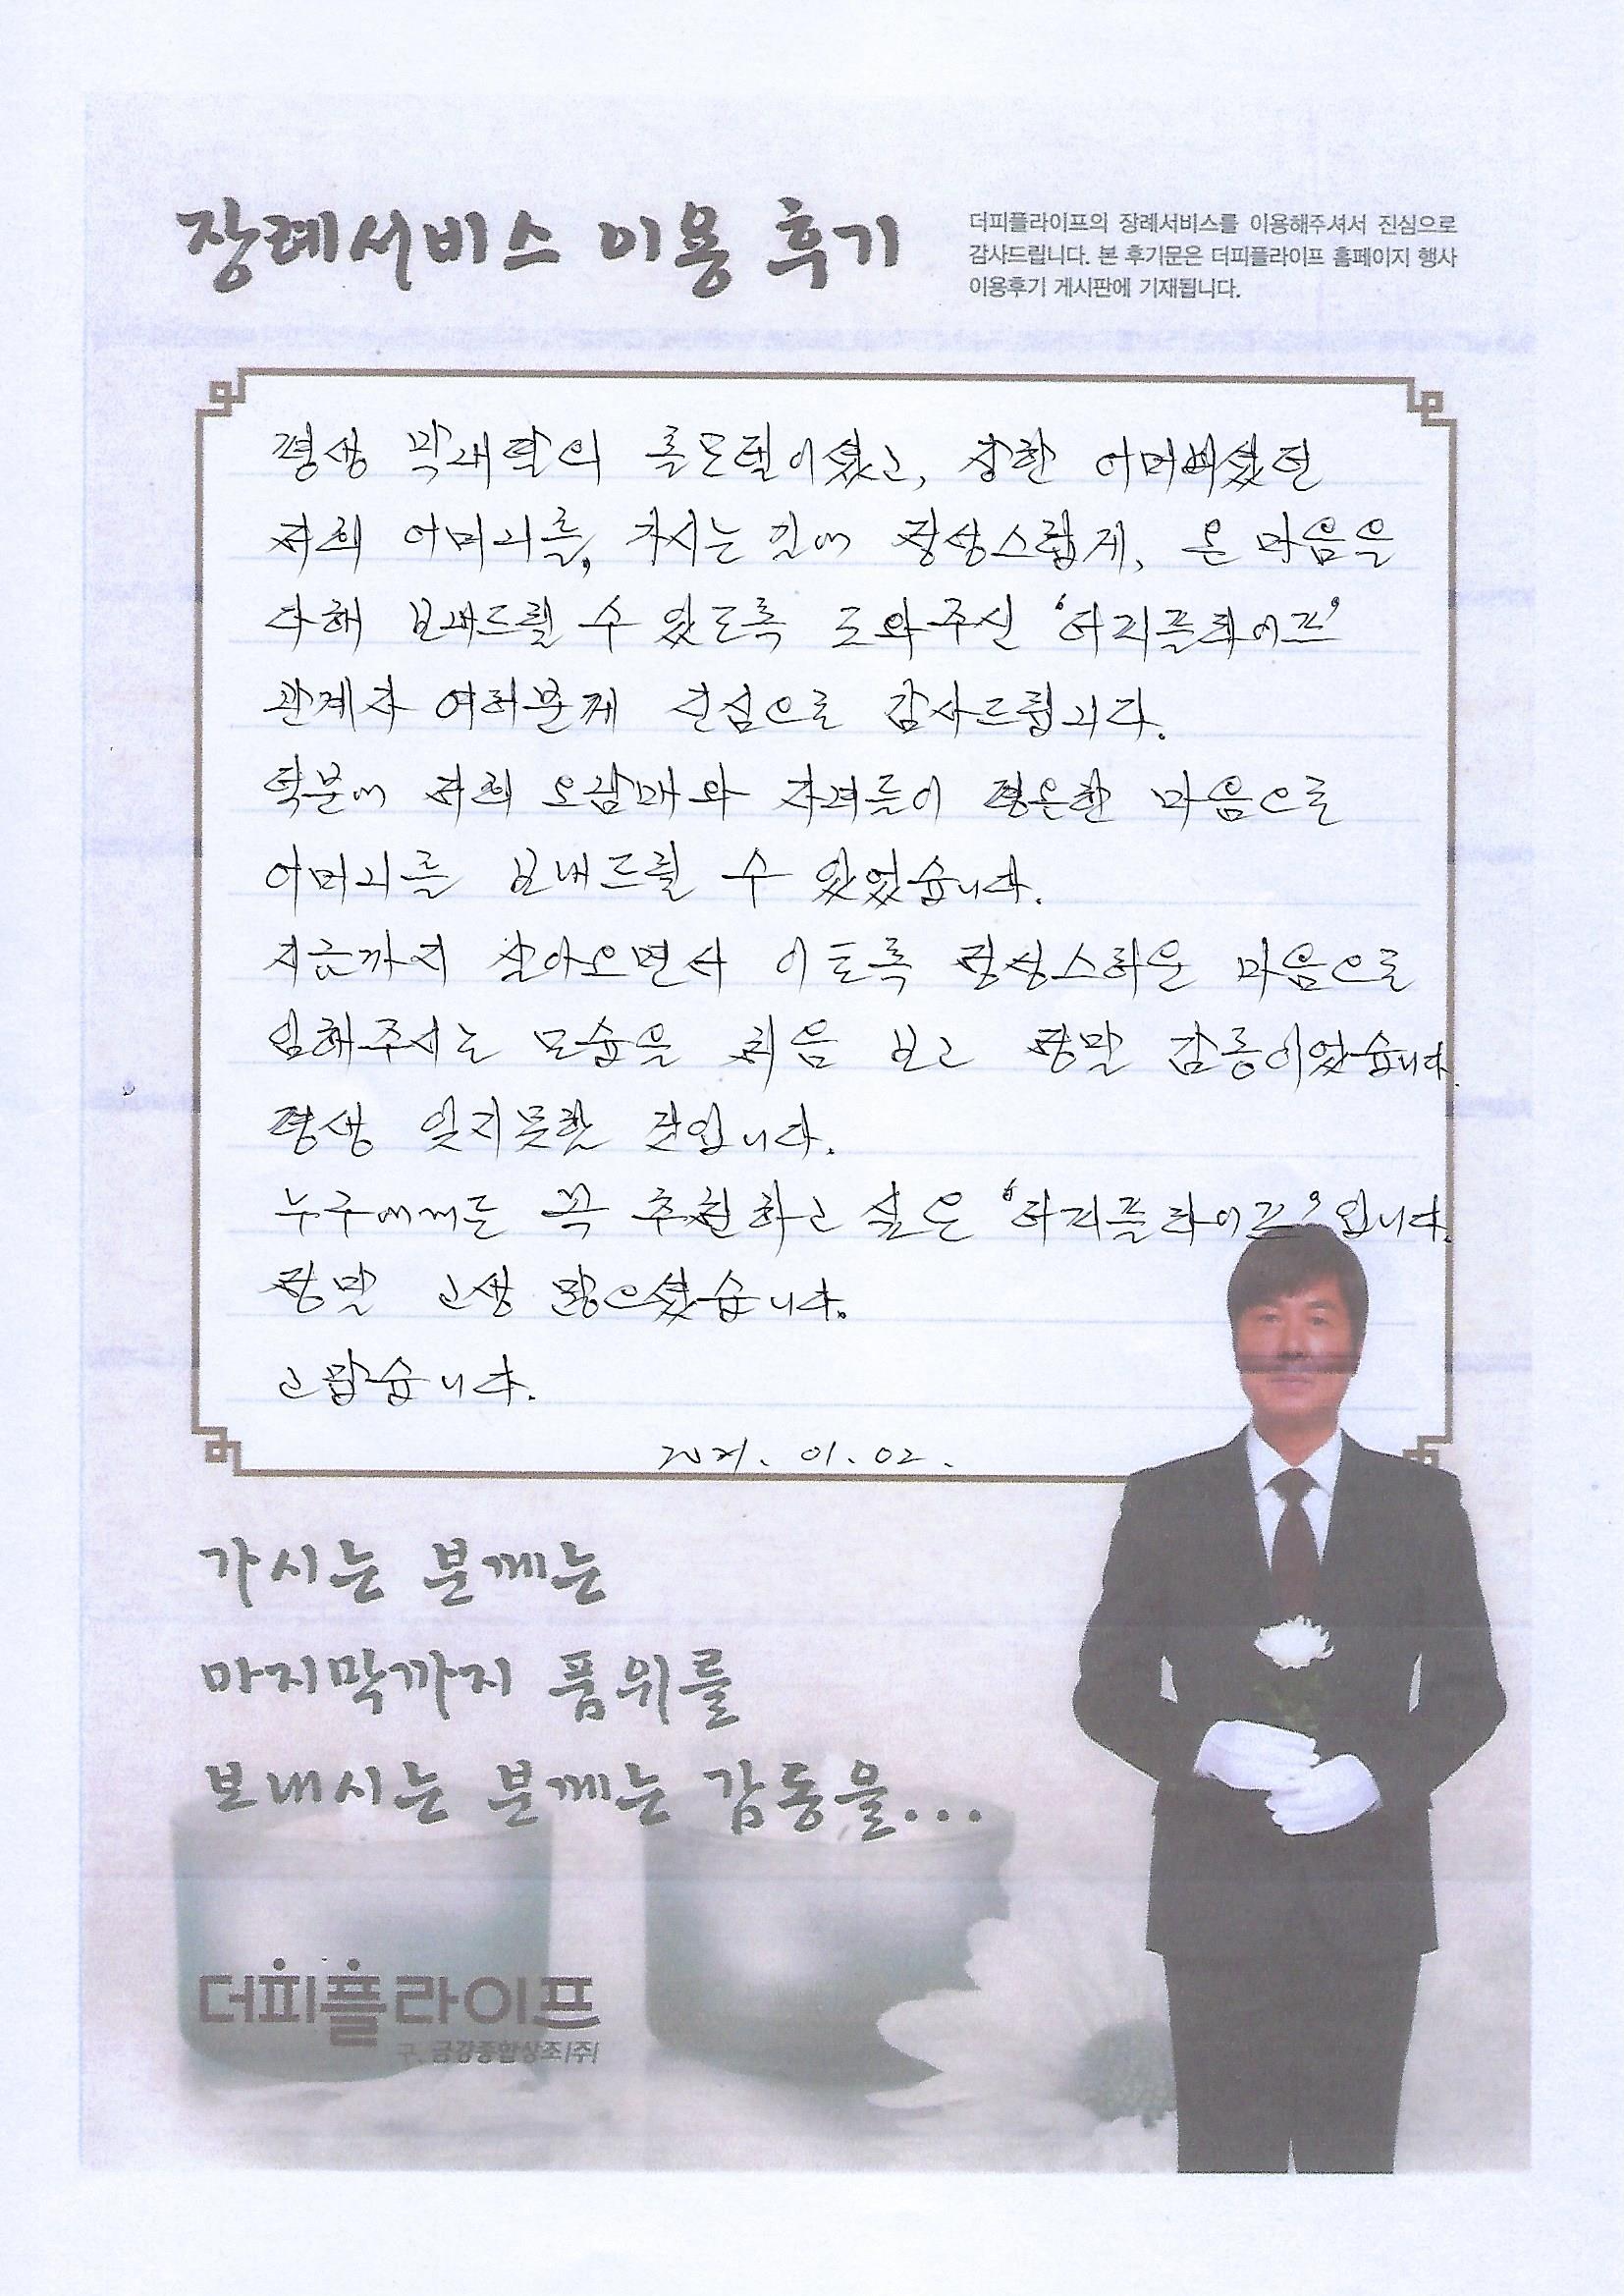 장례서비스 이용 후기
더피플라이프의 장례서비스를 이용해주셔서 진심으로
감사드립니다. 본 후기문은 더피플라이프 홈페이지 행사
이용후기 게시판에 기재됩니다.
평생 막내딸의 롤모델이셨고, 강한 어머니셨던
저희 어머니를, 가시는 길에 정성스럽게, 온 마음을
다해 보내드릴 수 있도록 도와주신 '더피플라이프'
관계자 여러분께 진심으로 감사드립니다.
덕분에 저희 오남매와 자녀들이 평온한 마음으로
어머니를 보내드릴 수 있었습니다.
지금까지 살아오면서 이토록 정성스러운 마음으로
임해주시는 모습을 처음 보고 정말 감동이었습니다.
평생 잊지못할 것입니다.
누구에게든 꼭 추천하고 싶은 '더피플라이프' 입니다.
정말 고생 많으셨습니다.
고맙습니다.
2021. 01. 02.
가시는 분께는
마지막까지 품위를
보내시는 분께는 감동을...
더피플라이프
구. 금강종합상조(주)